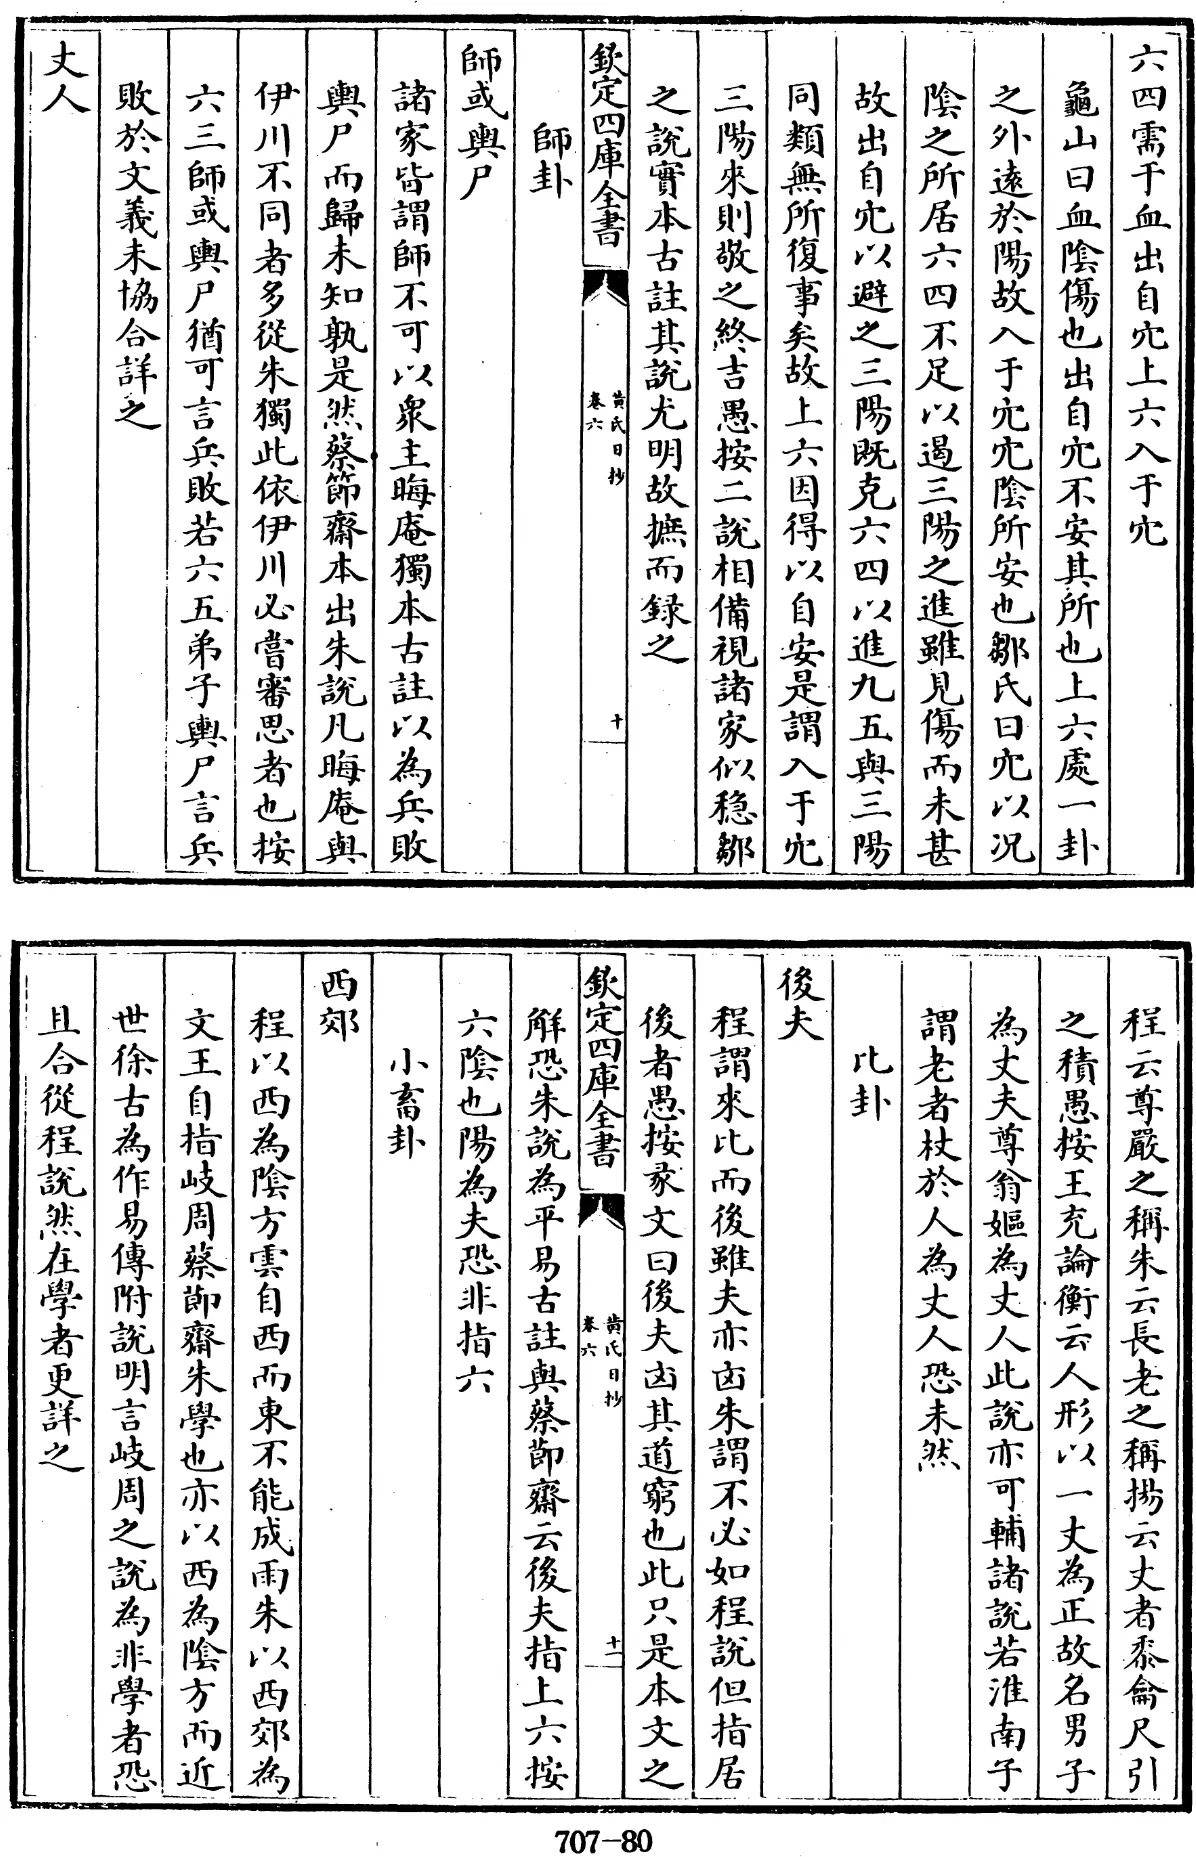 六四需于血出自穴上六入于穴
龜山曰血陰傷也出自穴不安其所也上六處一卦
之外逺於陽故入于穴穴陰所安也鄒氏曰穴以况
陰之所居六四不足以遏三陽之進雖見傷而未甚
故出自穴以避之三陽既克六四以進九五與三陽
同類無所復事矣故上六因得以自安是謂入于穴
三陽來則敬之終吉愚按二説相備視諸家似穏鄒
之説實本古註其説尤明故摭而録之
欽定四庫全書
黄氏日抄
卷六
十
師卦
師或輿尸
諸家皆謂師不可以衆主晦庵獨本古註以為兵敗
輿尸而歸未知孰是然蔡節齋本出朱説凡晦庵與
伊川不同者多從朱獨此依伊川必嘗審思者也按
六三師或輿尸猶可言兵敗若六五弟子輿尸言兵
敗於文義未協合詳之
丈人
程云尊嚴之稱朱云長老之稱揚云丈者黍龠尺引
之積愚按王充論衡云人形以一丈為正故名男子
為丈夫尊翁嫗為丈人此説亦可輔諸説若淮南子
謂老者杖於人為丈人恐未然
比卦
後夫
程謂來比而後雖夫亦凶朱謂不必如程説但指居
後者愚按彖文曰後夫凶其道窮也此只是本文之
欽定四庫全書
黄氏日抄
卷六
十一
解恐朱説為平易古註與蔡節齋云後夫指上六按
六陰也陽為夫恐非指六
小畜卦
西郊
程以西為陰方雲自西而東不能成雨朱以西郊為
文王自指岐周蔡節齋朱學也亦以西為陰方而近
世徐古為作易傳附説明言岐周之説為非學者恐
且合從程説然在學者更詳之
707-80